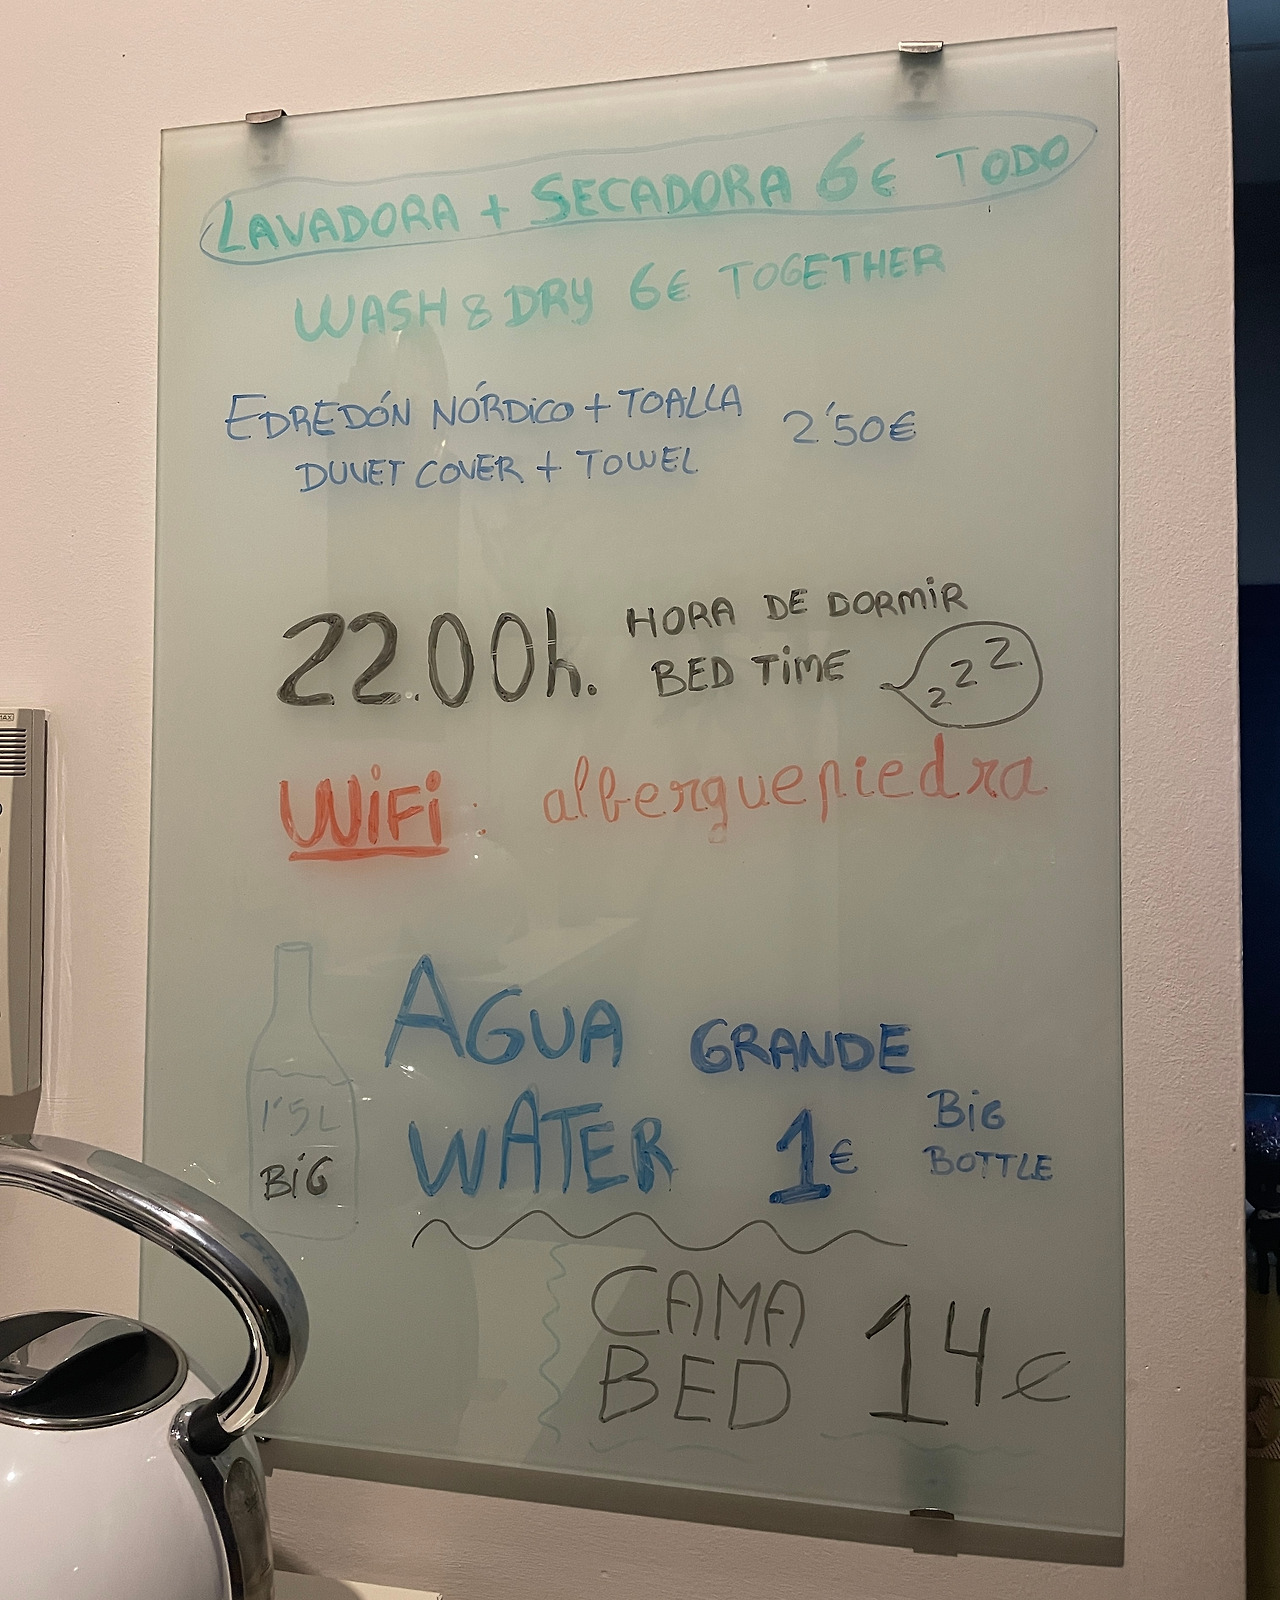 LAVADORA + SECADORA 6€ TODO
WASH & DRY 6€ TOGETHER
EDREDÓN NÓRDICO + TOALLA 2'50€
DUVET COVER + TOWEL
22.00h. HORA DE DORMIR
BED TIME z z z
WiFi: alberguepiedra
AGUA GRANDE
WATER 1€ BIG BOTTLE
1'5L
BIG
CAMA
BED 14€